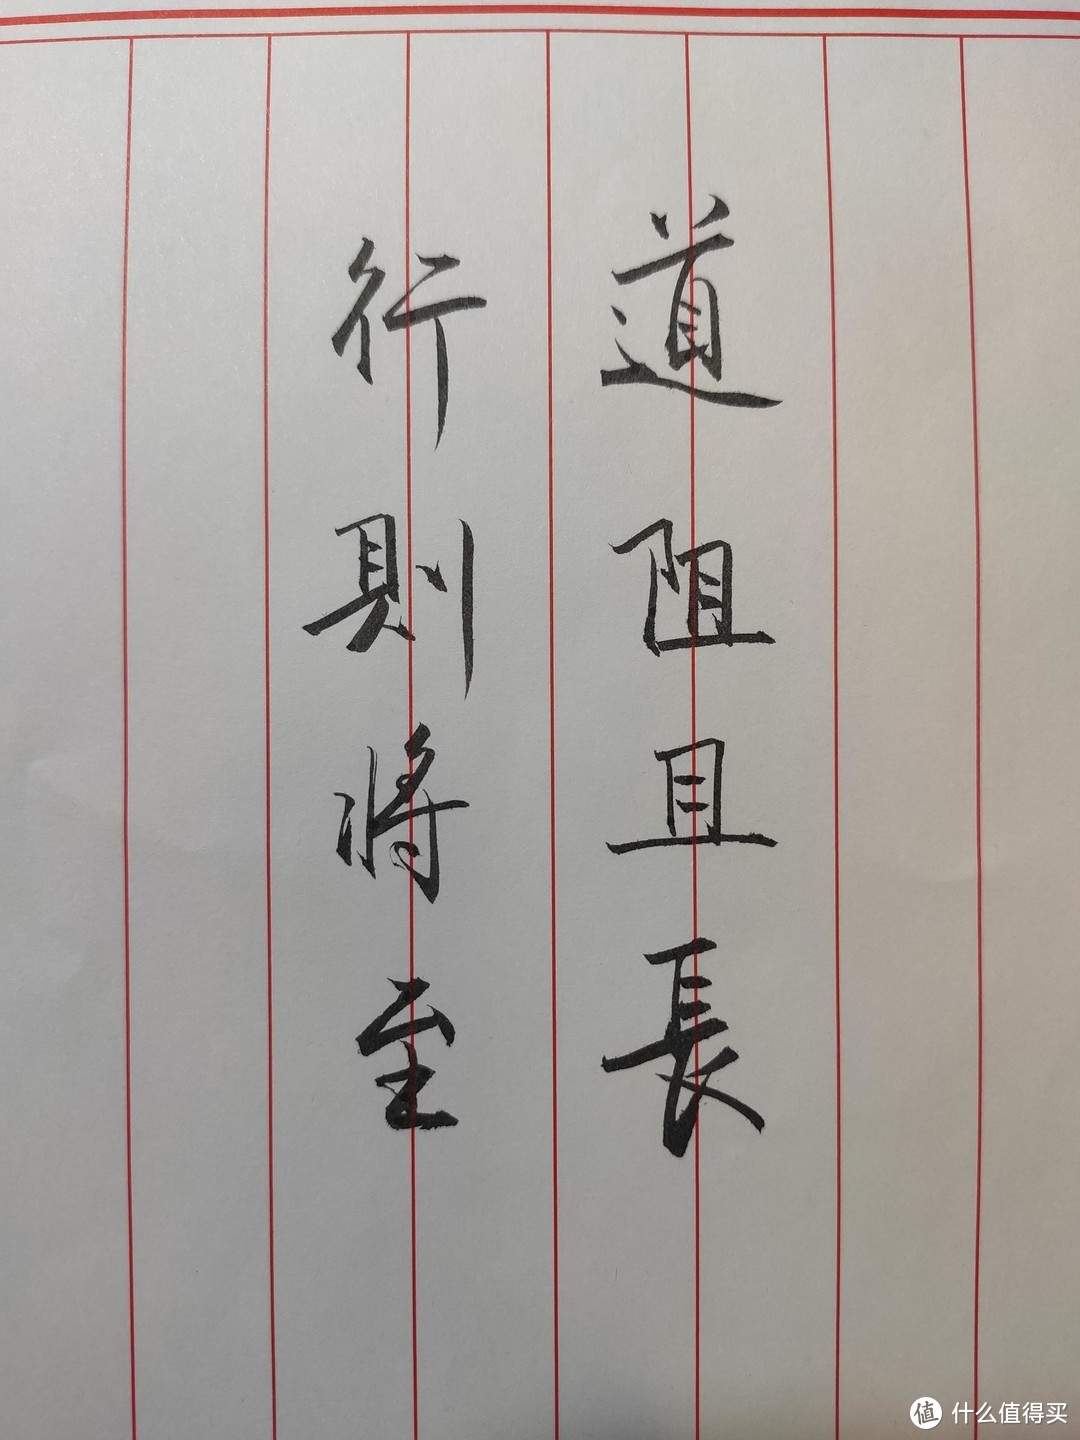 道阻且長
行則将至
值 什么值得买